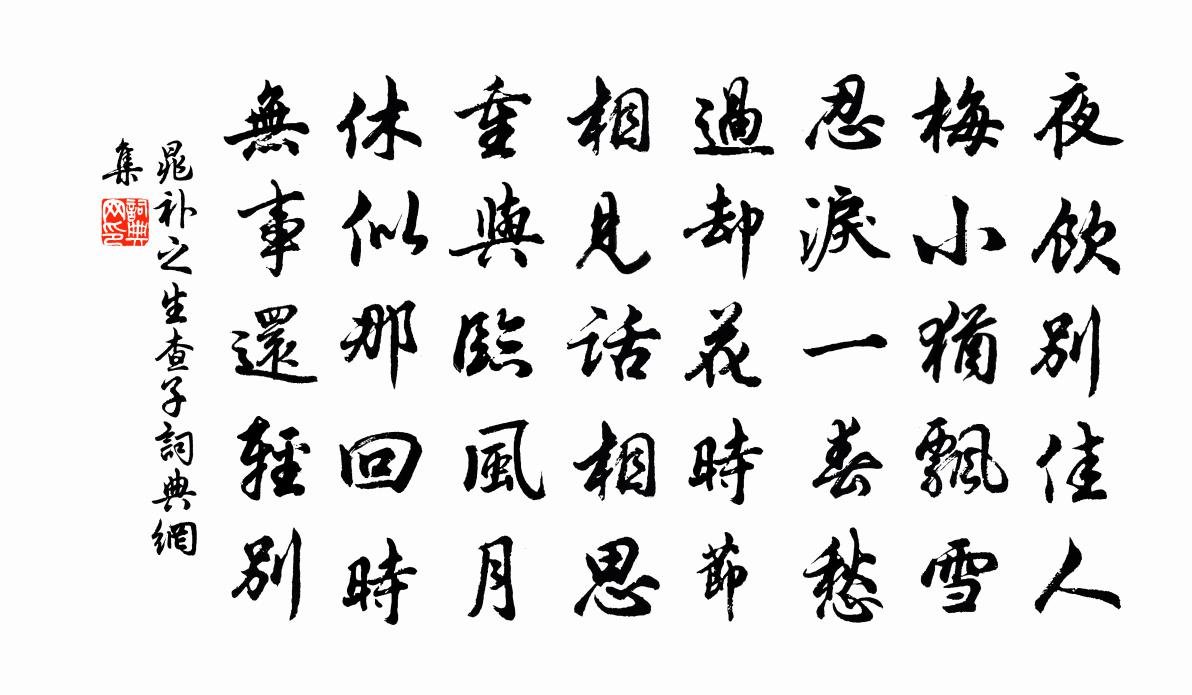 夜飲別佳人
梅小猶飄雪
忍淚一春愁
過却花時節
相見話相思
重與臨風月
休似那回時
無事還輕別
晁补之生查子詞典網
集
詞典网印